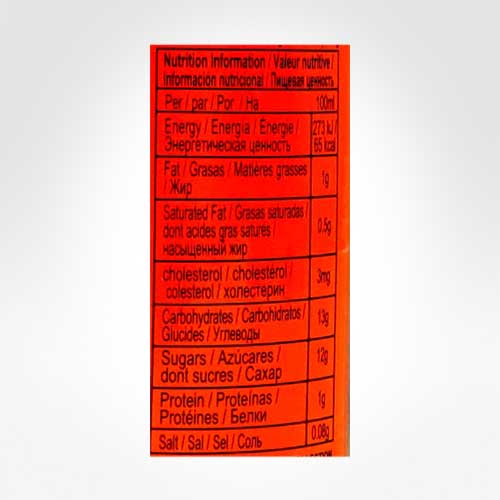 Nutrition Information / Valeur nutritive /
Información nutricional / Пищевая ценность
Per / par / Por / На 100ml
Energy / Energía / Énergie / 273 kJ /
Энергетическая ценность 65 kcal
Fat / Grasas / Matières grasses
/ Жир 1g
Saturated Fat / Grasas saturadas /
dont acides gras saturés / 0.5g
насыщенный жир
cholesterol / cholestérol /
colesterol / холестерин 3mg
Carbohydrates / Carbohidratos /
Glucides / Углеводы 13g
Sugars / Azúcares /
dont sucres / Сахар 12g
Protein / Proteínas /
Protéines / Белки 1g
Salt / Sal / Sel / Соль 0.08g